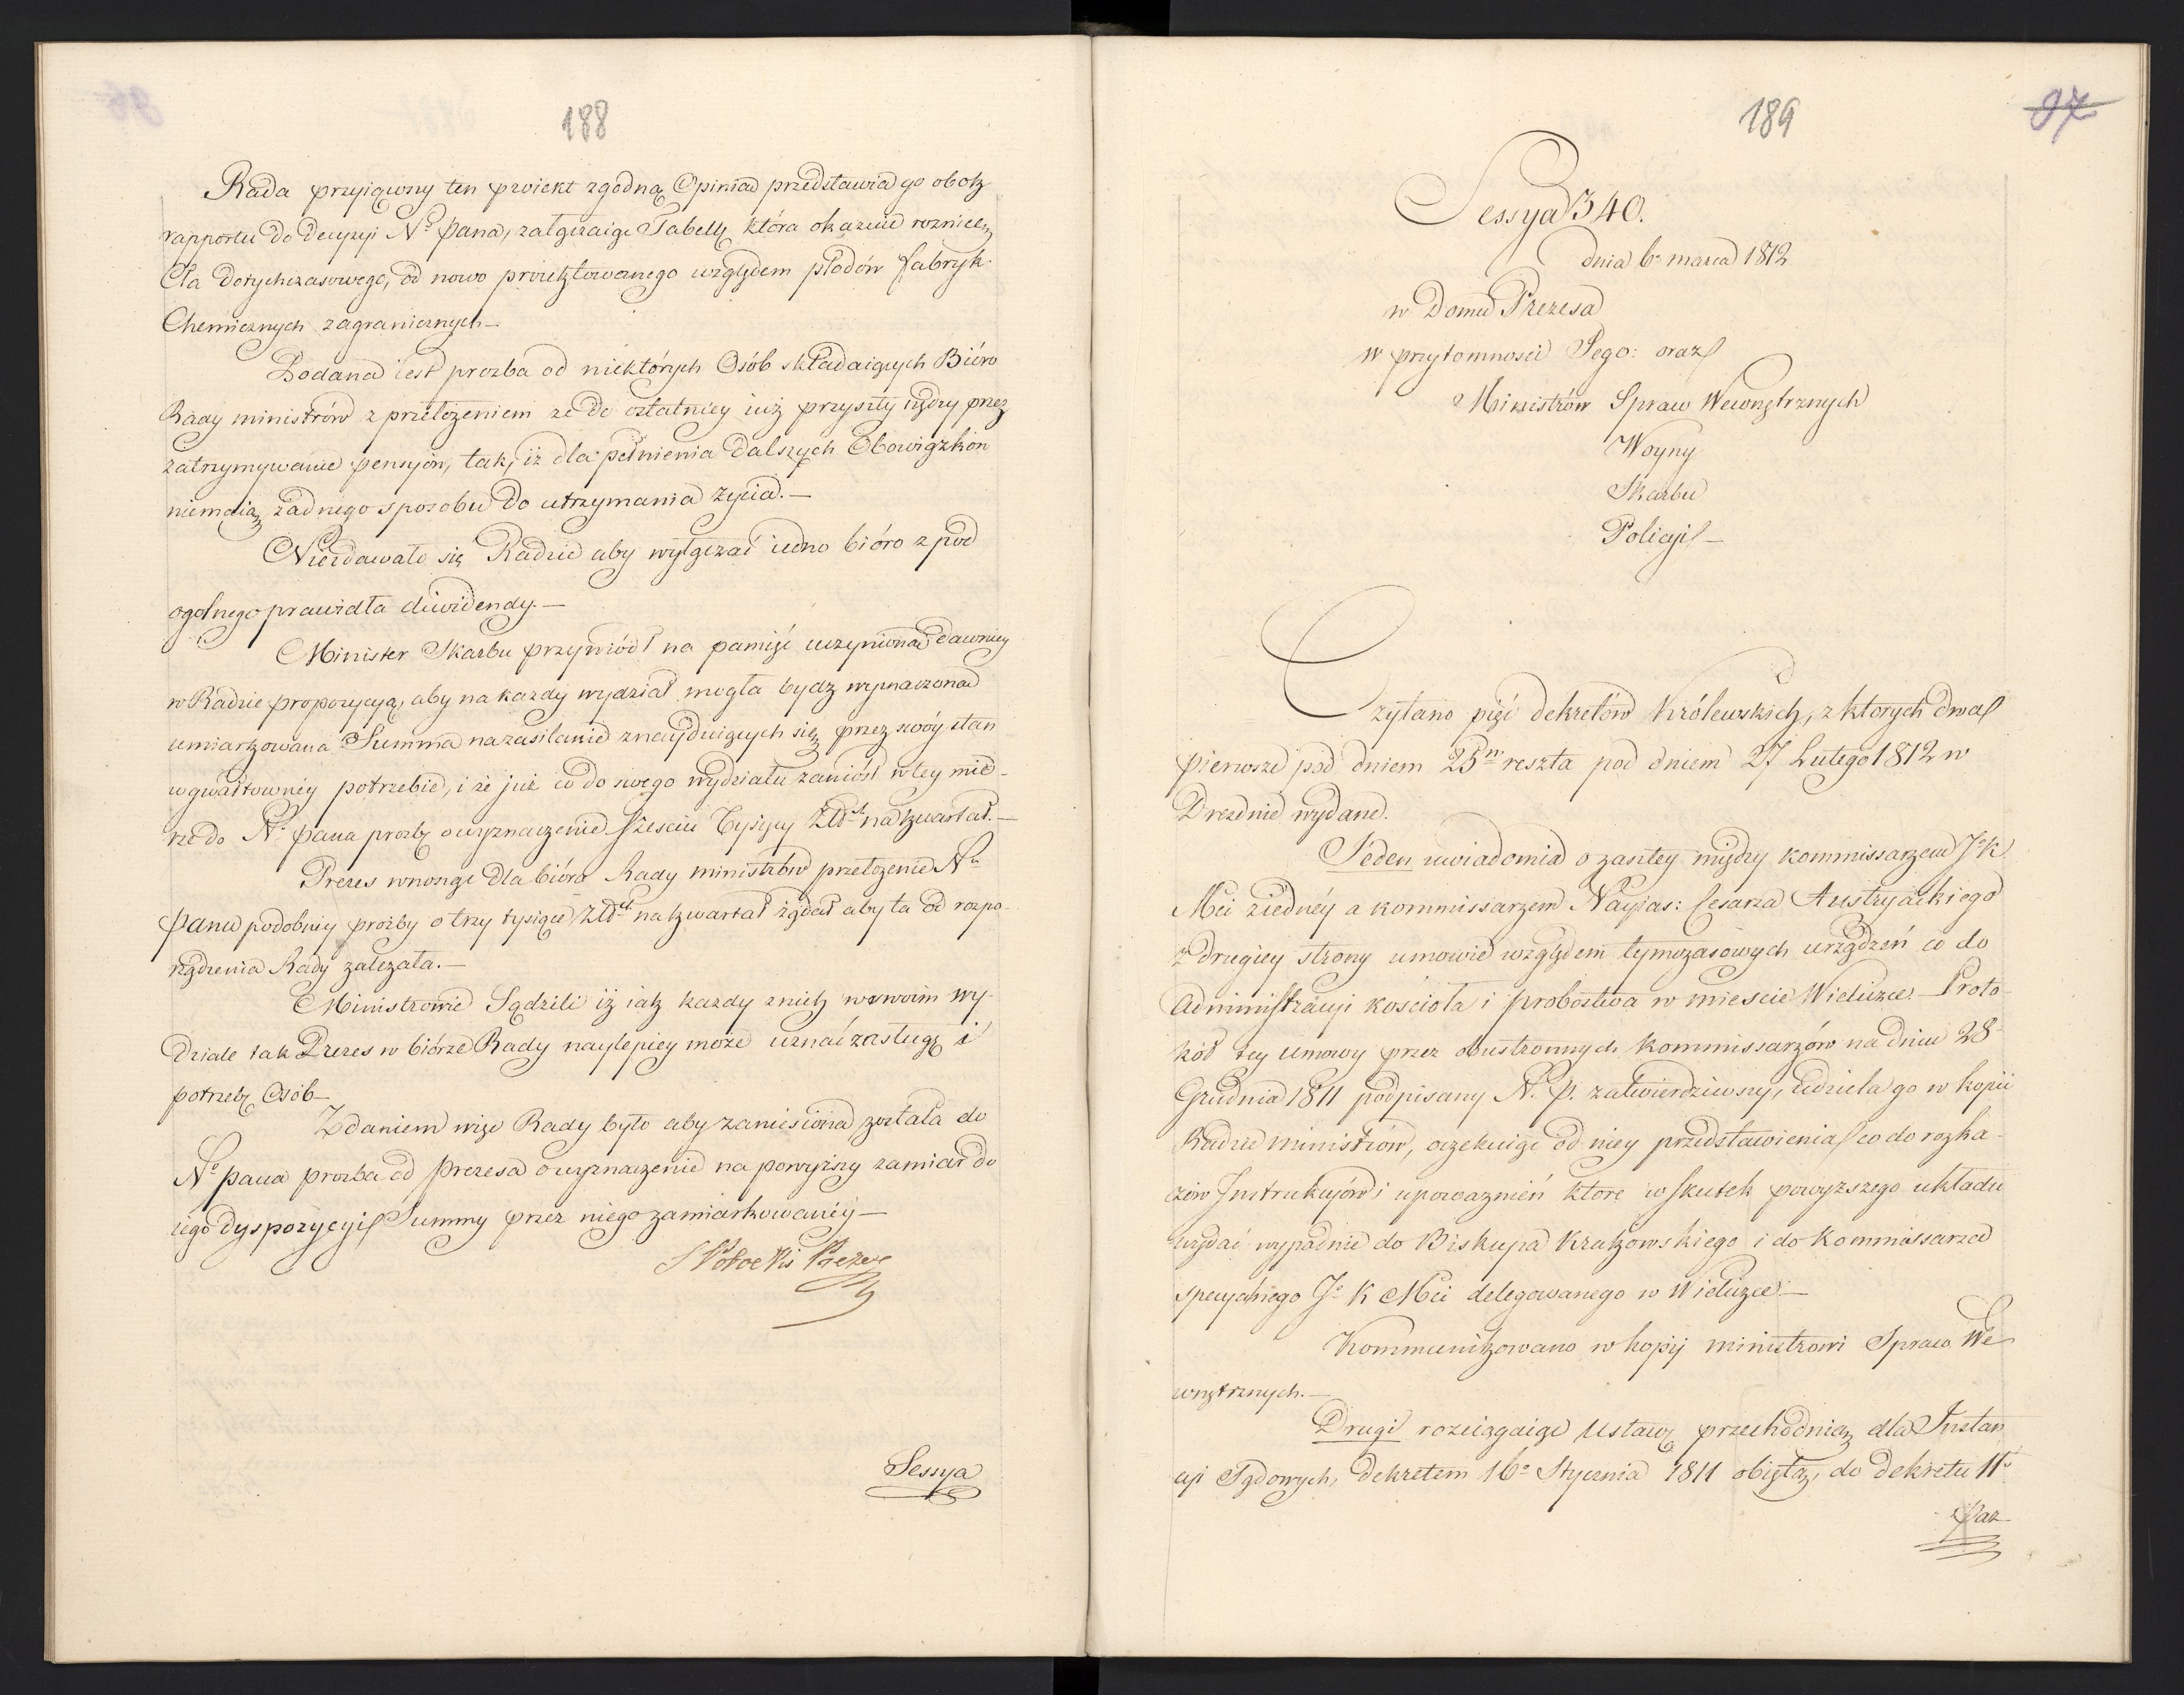 188
Rada przyiąwszy ten proiekt zgodną Opinią przedstawia go obok
rapportu do Decyzyi N<sup>o</sup> Pana, załączaiąc Tabellę która okazuie roznicę
Cła dotychczasowego, od nowo proiektowanego względem płodów fabryk
Chemicznych zagranicznych —
Podana iest prozba od niektórych Osób składaiących Bióro
Rady ministrów z przełożeniem ze do ostatniey iuż przyszły nędzy przez
zatrzymywanie pensyów, tak, iż dla pełnienia dalszych Obowiązków
niemaią żadnego sposobu do utrzymania życia. —
Niezdawało się Radzie aby wyłączać iedno bióro z pod
ogolnego prawidła diwidendy. —
Minister Skarbu przywiódł na pamięć uczynioną dawniey
w Radzie propozycyą, aby na kazdy wydział mogła bydz wyznaczona
umiarkowana Summa na zasilanie znayduiących się przez swóy stan
w gwałtowney potrzebie, i że już co do swego wydziału zaniósł w tey mie-
rze do N. Pana prozbę o wyznaczenie sześciu Tysięcy Złt na kwartał. —
Prezes wnosząc dla bióra Rady ministrów przełożenie N<sup>u</sup>
Panu podobney prozby o trzy tysiące Złt na kwartał żądał aby ta od rozpo-
rządzenia Rady zależała. —
Ministrowie Sądzili iż iak kazdy z nich w swoim wy-
dziale tak Prezes w biórze Rady naylepiey może uznać zasługę i
potrzebę Osób —
Zdaniem więc Rady było aby zaniesiona została do
N<sup>o</sup> Pana prozba od Prezesa o wyznaczenie na powyższy zamiar do
iego dyspozycyi Summy przez niego zamiarkowaney —
S Potocki Prezes
Sessya
189
97
Sessya 340.
dnia 6<sup>o</sup> marca 1812
w Domu Prezesa
w przytomnosci Jego: oraz
Ministrów Spraw Wewnętrznych
Woyny
Skarbu
Policyi —
Czytano pięć dekretów Królewskich, z ktorych dwa
pierwsze pod dniem 25<sup>m</sup> reszta pod dniem 27 Lutego 1812 w
Dreznie wydane.
Jeden uwiadomia o zaszłey między kommissarzem J<sup>o</sup> K
Mci z iedney a kommissarzem Nayias: Cesarza Austryackiego
z drugiey strony umowie względem tymczasowych urządzeń co do
Administracyi kościoła i probostwa w miescie Wieliczce. Proto-
kół tey umowy przez obustronnych kommissarzów na dniu 28
Grudnia 1811 podpisany N. P. zatwierdziwszy, udziela go w kopii
Radzie ministrów, oczekuiąc od niey przedstawienia co do rozka-
zów Instrukcyów i upowaznień ktore w skutek powyższego układu
wydać wypadnie do Biskupa Krakowskiego i do Kommissarza
specyalnego J<sup>o</sup> K Mci delegowanego w Wieliczce —
Kommunikowano w kopij ministrowi Spraw We
wnętrznych. —
Drugi rozciągaiąc Ustawę przechodnią dla Instan
cyi Sądowych, dekretem 16<sup>o</sup> Stycznia 1811 obiętą, do dekretu 11<sup>o</sup>
Paz